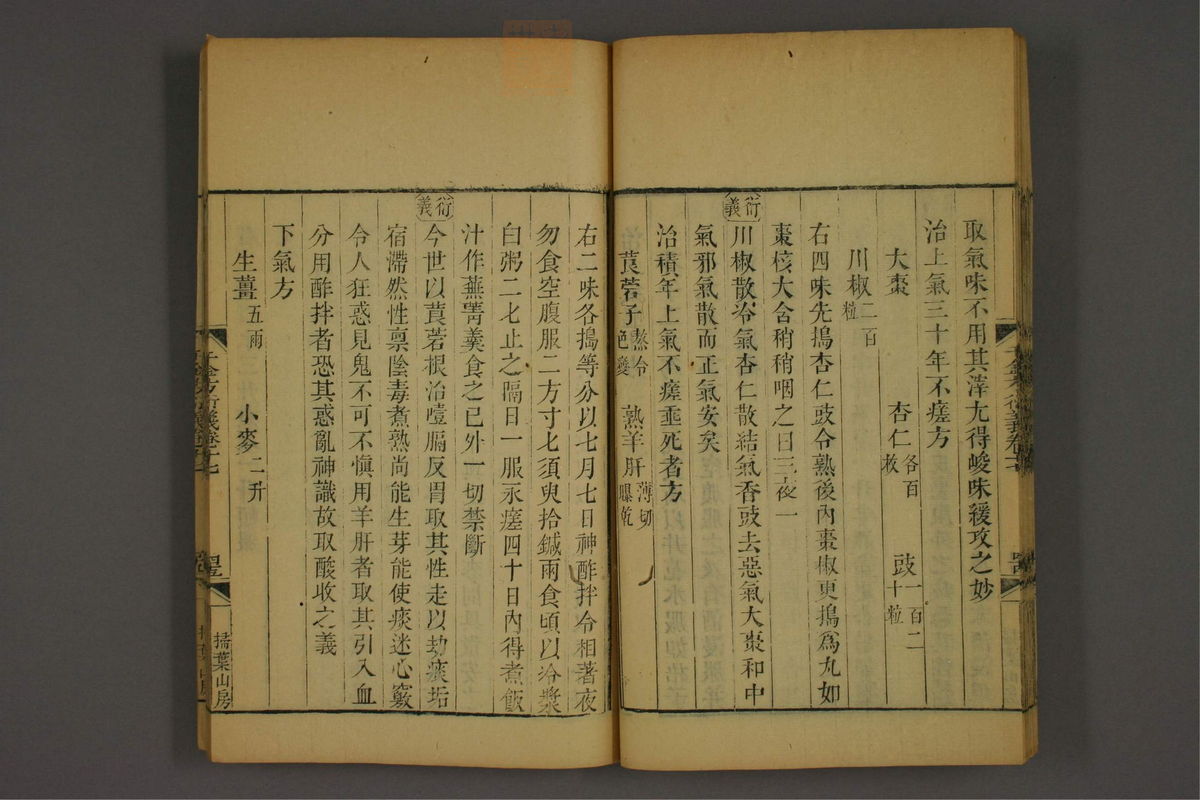 取氣味不用其滓尢得峻味緩攻之妙
治上氣三十年不瘥方
大棗 杏仁各百枚 豉一百二十粒
川椒二百粒
右四味先搗杏仁豉令熟後內棗椒更搗爲丸如
棗核大含稍稍咽之日三夜一
衍義
川椒散冷氣杏仁散結氣香豉去惡氣大棗和中
氣邪氣散而正氣安矣
治積年上氣不瘥垂死者方
莨菪子熬令色變 熟羊肝薄切曝乾
右二味各搗等分以七月七日神酢拌令相著夜
勿食空腹服二方寸匕須臾拾鍼兩食頃以冷漿
白粥二七止之隔日一服永瘥四十日內得煮飯
汁作蕪菁羹食之已外一切禁斷
衍義
今世以莨菪根治噎膈反胃取其性走以劫痰垢
宿滯然性禀陰毒煮熟尚能生芽能使痰迷心竅
令人狂惑見鬼不可不愼用羊肝者取其引入血
分用酢拌者恐其惑亂神識故取酸收之義
下氣方
生薑五兩 小麥二升
掃葉山房